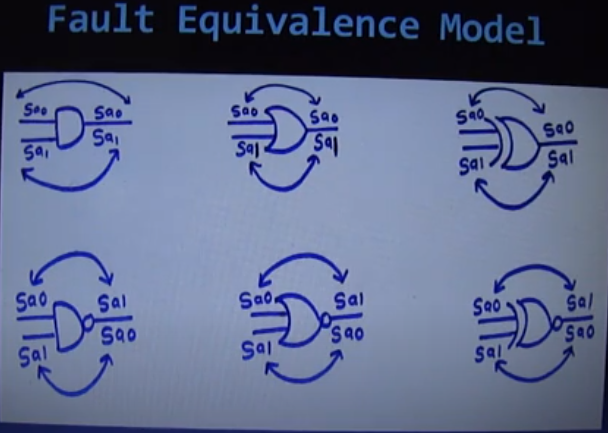 Fault Equivalence Model
Sa0 Sa0
Sa1 Sa1
Sa0 Sa0
Sa1 Sa1
Sa0 Sa0
Sa1 Sa1
Sa0 Sa1
Sa1 Sa0
Sa0 Sa1
Sa1 Sa0
Sa0 Sa1
Sa1 Sa0